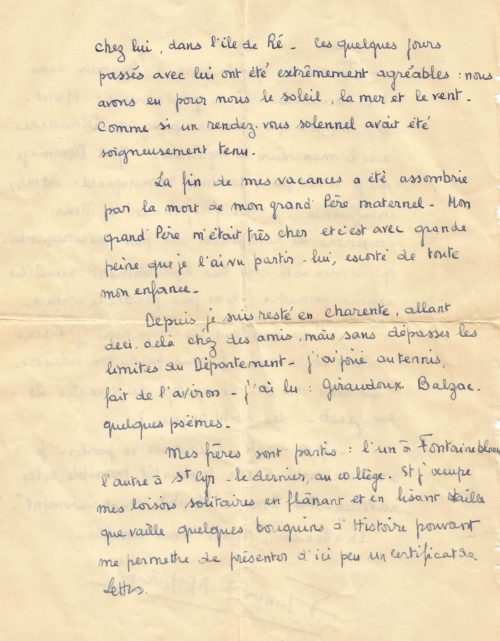 chez lui, dans l'île de Ré - Ces quelques jours
passés avec lui ont été extrêmement agréables : nous
avons eu pour nous le soleil, la mer et le vent -
Comme si un rendez-vous solennel avait été
soigneusement tenu.
La fin de mes vacances a été assombrie
par la mort de mon grand Père maternel - Mon
grand Père m'était très cher et c'est avec grande
peine que je l'ai vu partir - lui, escorté de toute
mon enfance -
Depuis, je suis resté en charente, allant
deci, delà chez des amis, mais sans dépasser les
limites du Département - j'ai joué au tennis,
fait de l'aviron - j'ai lu : Giraudoux Balzac.
quelques poèmes -
Mes frères sont partis : l'un à Fontainebleau
l'autre à St Cyr - le dernier, au collège. Et j'occupe
mes loisirs solitaires en flânant et en lisant vaille
que vaille quelques bouquins d'Histoire pouvant
me permettre de présenter d'ici peu un certificat de
lettres.